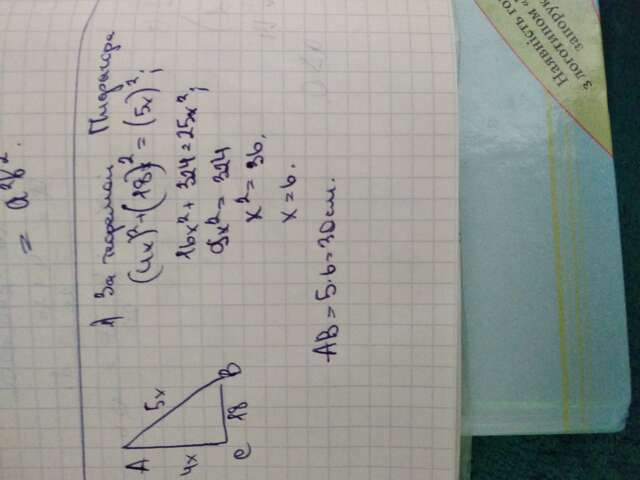 = a²b².
1) За теоремою Піфагора
(4x)² + (18)² = (5x)²;
A
5x
4x
C 18 B
16x² + 324 = 25x²;
9x² = 324
x² = 36.
x = 6.
AB = 5·6 = 30см.
Наявність го
з логотипом «
запорук